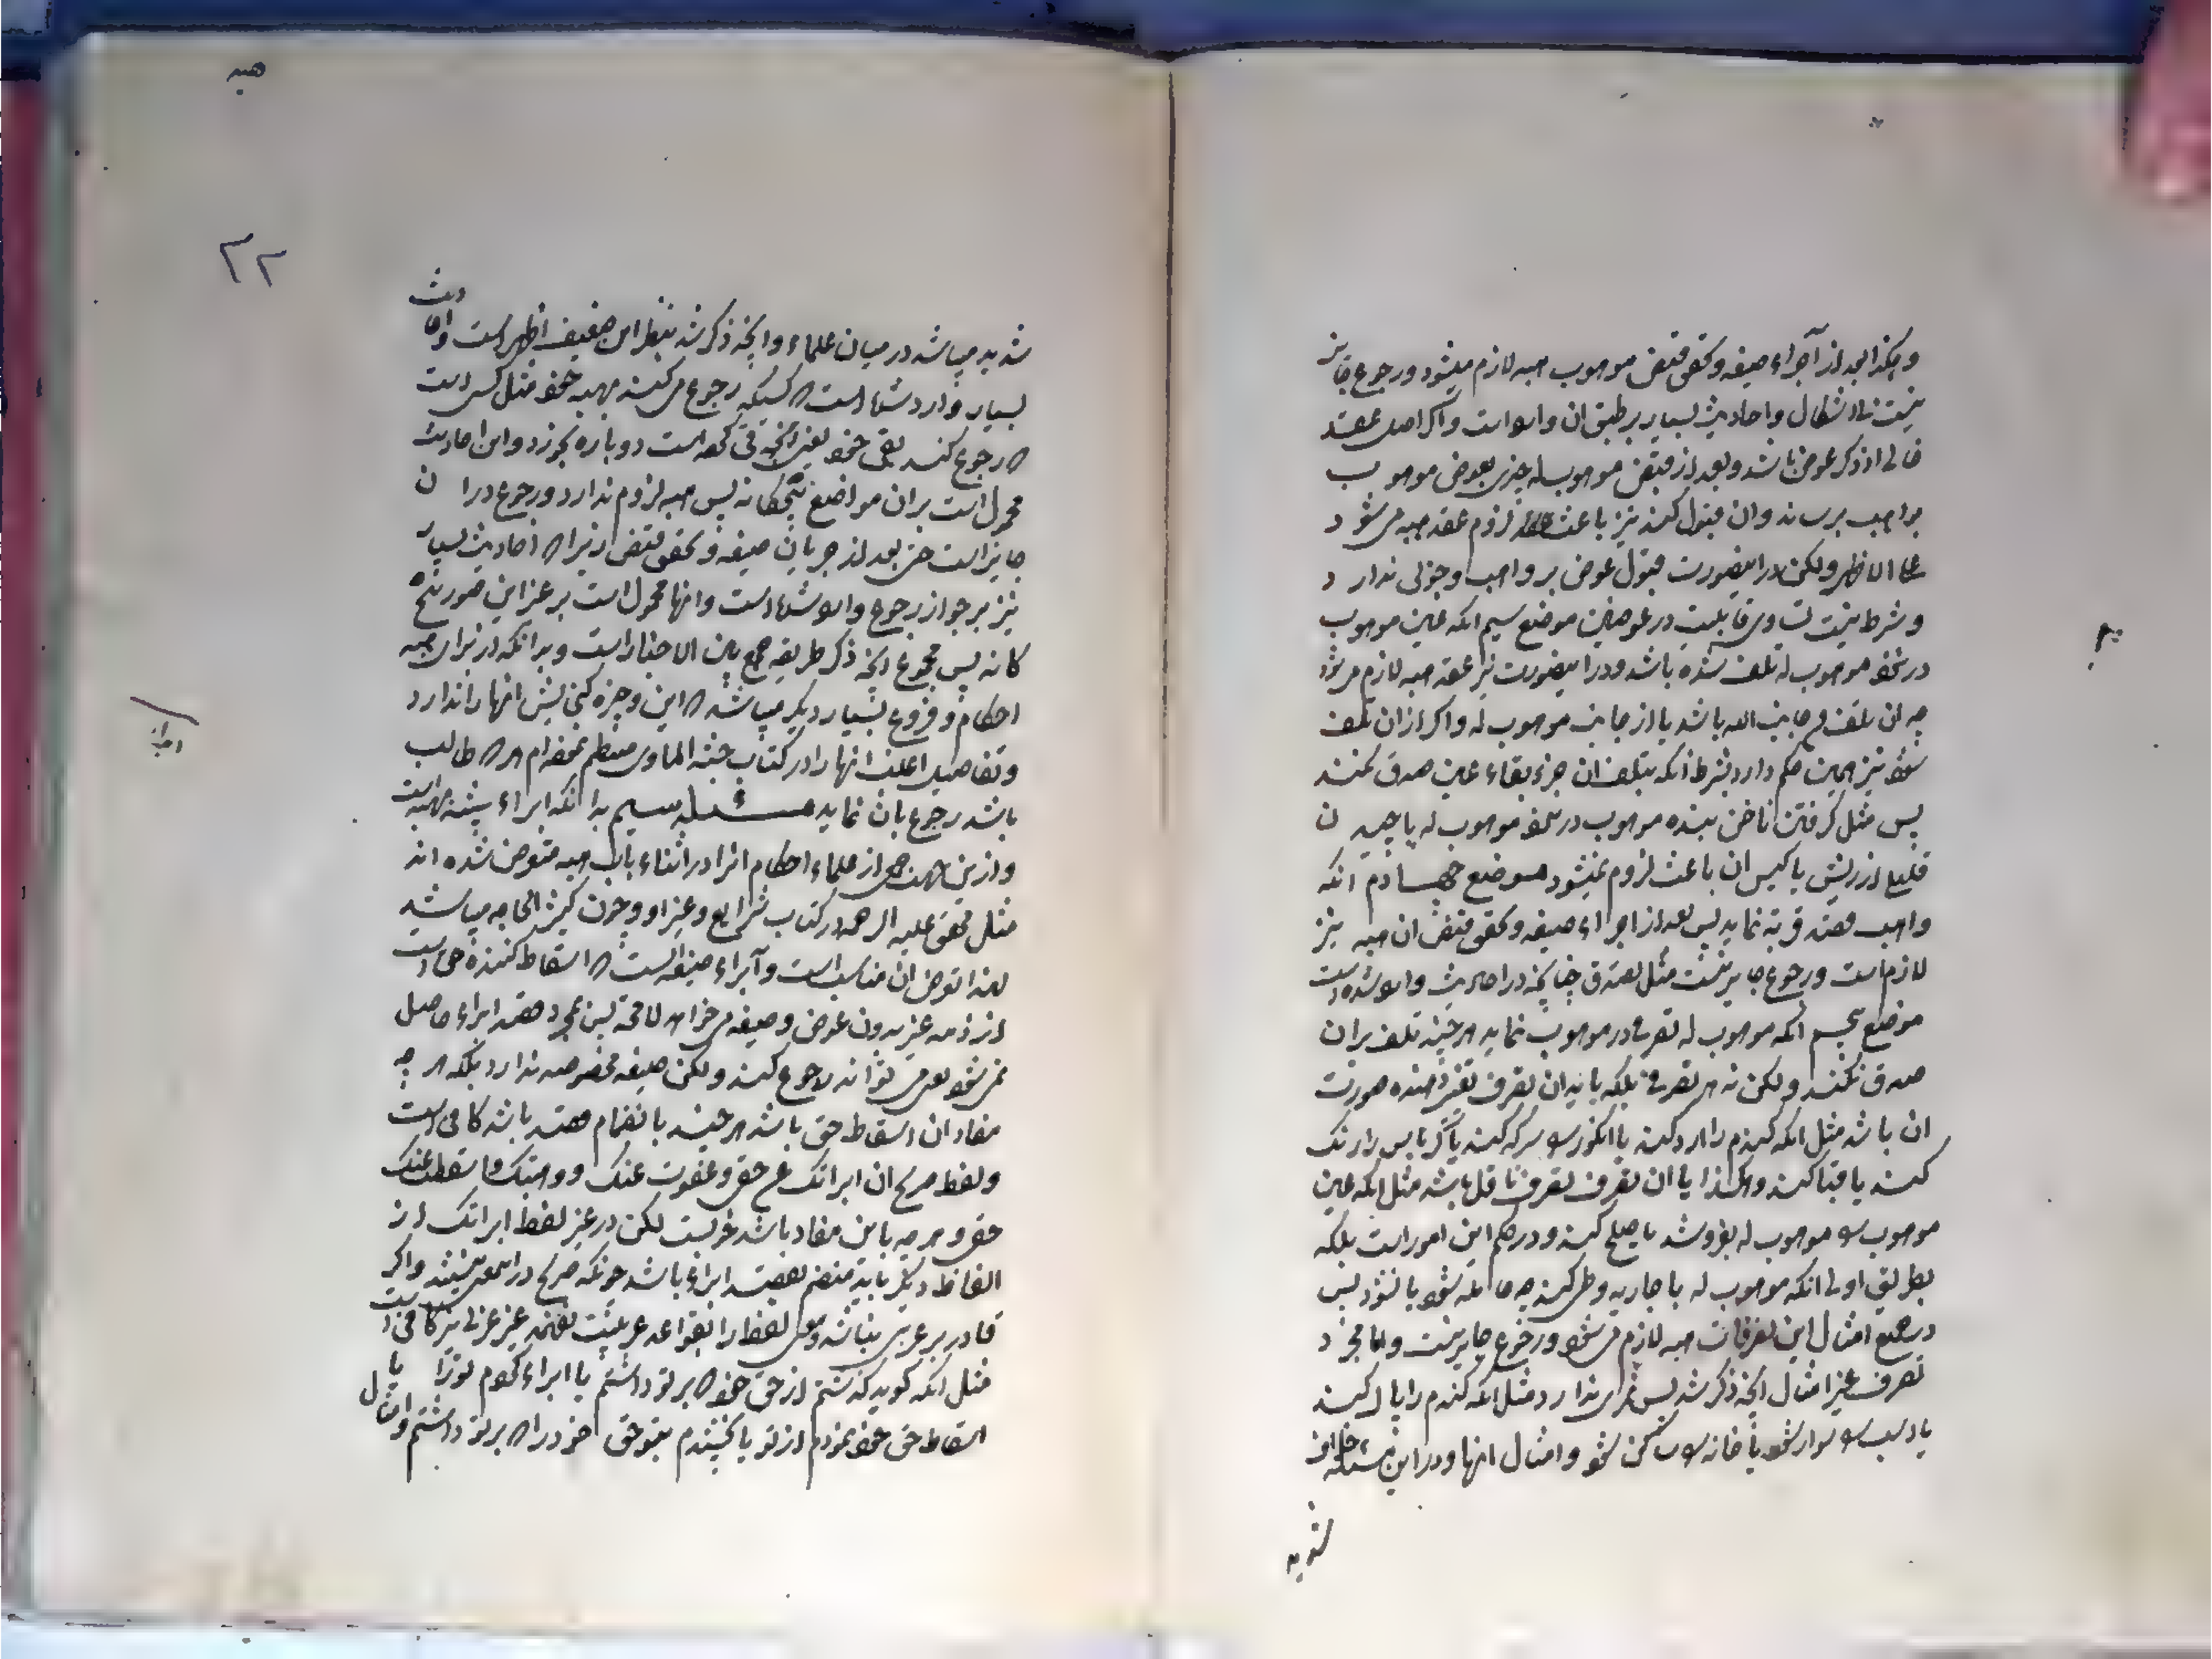 وهکذا بعد از اجراء صیغه و تحقق قبض موهوب هبه لازم میشود و رجوع جایز
نیست بلا اشکال و احادیث بسیار بر طبق آن وارد است و اگر اصل عقد
خالی از ذکر عوض باشد و بعد از قبض موهوب له چیزی بعوض موهوب
بواهب برساند و آن قبول کند نیز باعث لزوم عقد هبه می شود
علی الاظهر ولکن در اینصورت قبول عوض بر واهب وجوبی ندارد
و شرط نیست تساوی قابلیت در عوضین موضع سیم آنکه عین موهوب
در نزد موهوب له تلف شده باشد و در اینصورت نیز عقد هبه لازم می شود
چه آن تلف من جانب الله باشد یا از جانب موهوب له و اگر از آن تلف
شود نیز همین حکم دارد بشرط آنکه بتلف آن جزء بقاء عین صدق نکند
پس مثل گرفتن ناخن بنده موهوب در نزد موهوب له یا چیدن
قلیل از ریش یا گیس آن باعث لزوم نمیشود موضع چهارم آنکه
واهب قصد قربة نماید پس بعد از اجراء صیغه و تحقق قبض آن هبه نیز
لازم است و رجوع جایز نیست مثل تصدق چنانچه در احادیث وارد شده است
موضع پنجم آنکه موهوب له تصرف در موهوب نماید هر چند تلف بر آن
صدق نکند ولکن نه هر تصرفی بلکه باید آن تصرف تغیر دهنده صورت
آن باشد مثل آنکه گندم را آرد کند یا انگور را سرکه کند یا کرباس را رنگ
کند یا قبا کند و هکذا یا آن تصرف تصرف ناقل باشد مثل آنکه عین
موهوب را موهوب له بفروشد یا صلح کند و در حکم این امور است بلکه
بطریق اولی آنکه موهوب له با جاریه وطی کند چه حامله شود یا نشود پس
در جمیع امثال این تصرفات هبه لازم می شود و رجوع جایز نیست و اما مجرد
تصرف غیر امثال آنچه ذکر شد پس ثمری ندارد مثل آنکه گندم را پاک کند
یا اسب را سوار شود یا خانه را ساکن شود و امثال آنها و در این مسئله خلاف
شدید
هبه
۳۲
شدید میباشد در میان علماء و آنچه ذکر شد بنظر این ضعیف اظهر است و احادیث
بسیار وارد شده است که کسیکه رجوع می کند بهبه خود مثل کسی است
که رجوع کند بقی خود یعنی آنچه قی کرده است دوباره بخورد و این احادیث
محمول است بر آن مواضع پنجگانه پس هبه لزوم ندارد و رجوع در آن
جایز است حتی بعد از جریان صیغه و تحقق قبض زیرا که احادیث بسیار
نیز بر جواز رجوع وارد شده است و آنها محمول است بر غیر این صور پنج
گانه پس مجموع آنچه ذکر طریقه جمع بین الاخبار است و بدانکه از برای هبه
احکام و فروع بسیار دیگر میباشد که این وجیزه گنجایش آنها را ندارد
و تفاصیل اغلب آنها را در کتاب جنة الماوی منظم نموده ام هر که طالب
باشد رجوع بآن نماید مسئله سیم بدانکه ابراء شبیه بهبه است
و از این جهت جمعی از علماء احکام آنرا در اثناء باب هبه متعرض شده اند
مثل محقق علیه الرحمه در کتاب شرایع و غیر او و چون کثیر الحاجه میباشد
لهذا تعرض آن مناسب است و ابراء صیغه ایست که اسقاط کننده حق است
از ذمه غیر بدون عوض و صیغه می خواهد لا محاله پس بمجرد قصد ابراء حاصل
نمی شود یعنی می تواند رجوع کند ولکن صیغه مخصوصه ندارد بلکه هر چه
مفاد آن اسقاط حق باشد هر چند بانضمام قصد باشد کافی است
و لفظ صریح آن ابراتک عن حقی و عفوت عنک و وهبتک و اسقطت عنک
حقی و هر چه باین مفاد باشد خوبست لکن در غیر لفظ ابراتک از
الفاظ دیگر باید منضم بقصد ابراء باشد چونکه صریح در این معنی نیستند و اگر
قادر بر عربی نباشد و این لفظ را بقواعد عربیت نفهمد غیر عربی نیز کافی است
مثل آنکه گوید گذشتم از حق خود که بر تو داشتم یا ابراء کردم تو را یا
اسقاط حق خود نمودم از تو یا بخشیدم بتو حق خود را که بر تو داشتم و امثال
ابراء